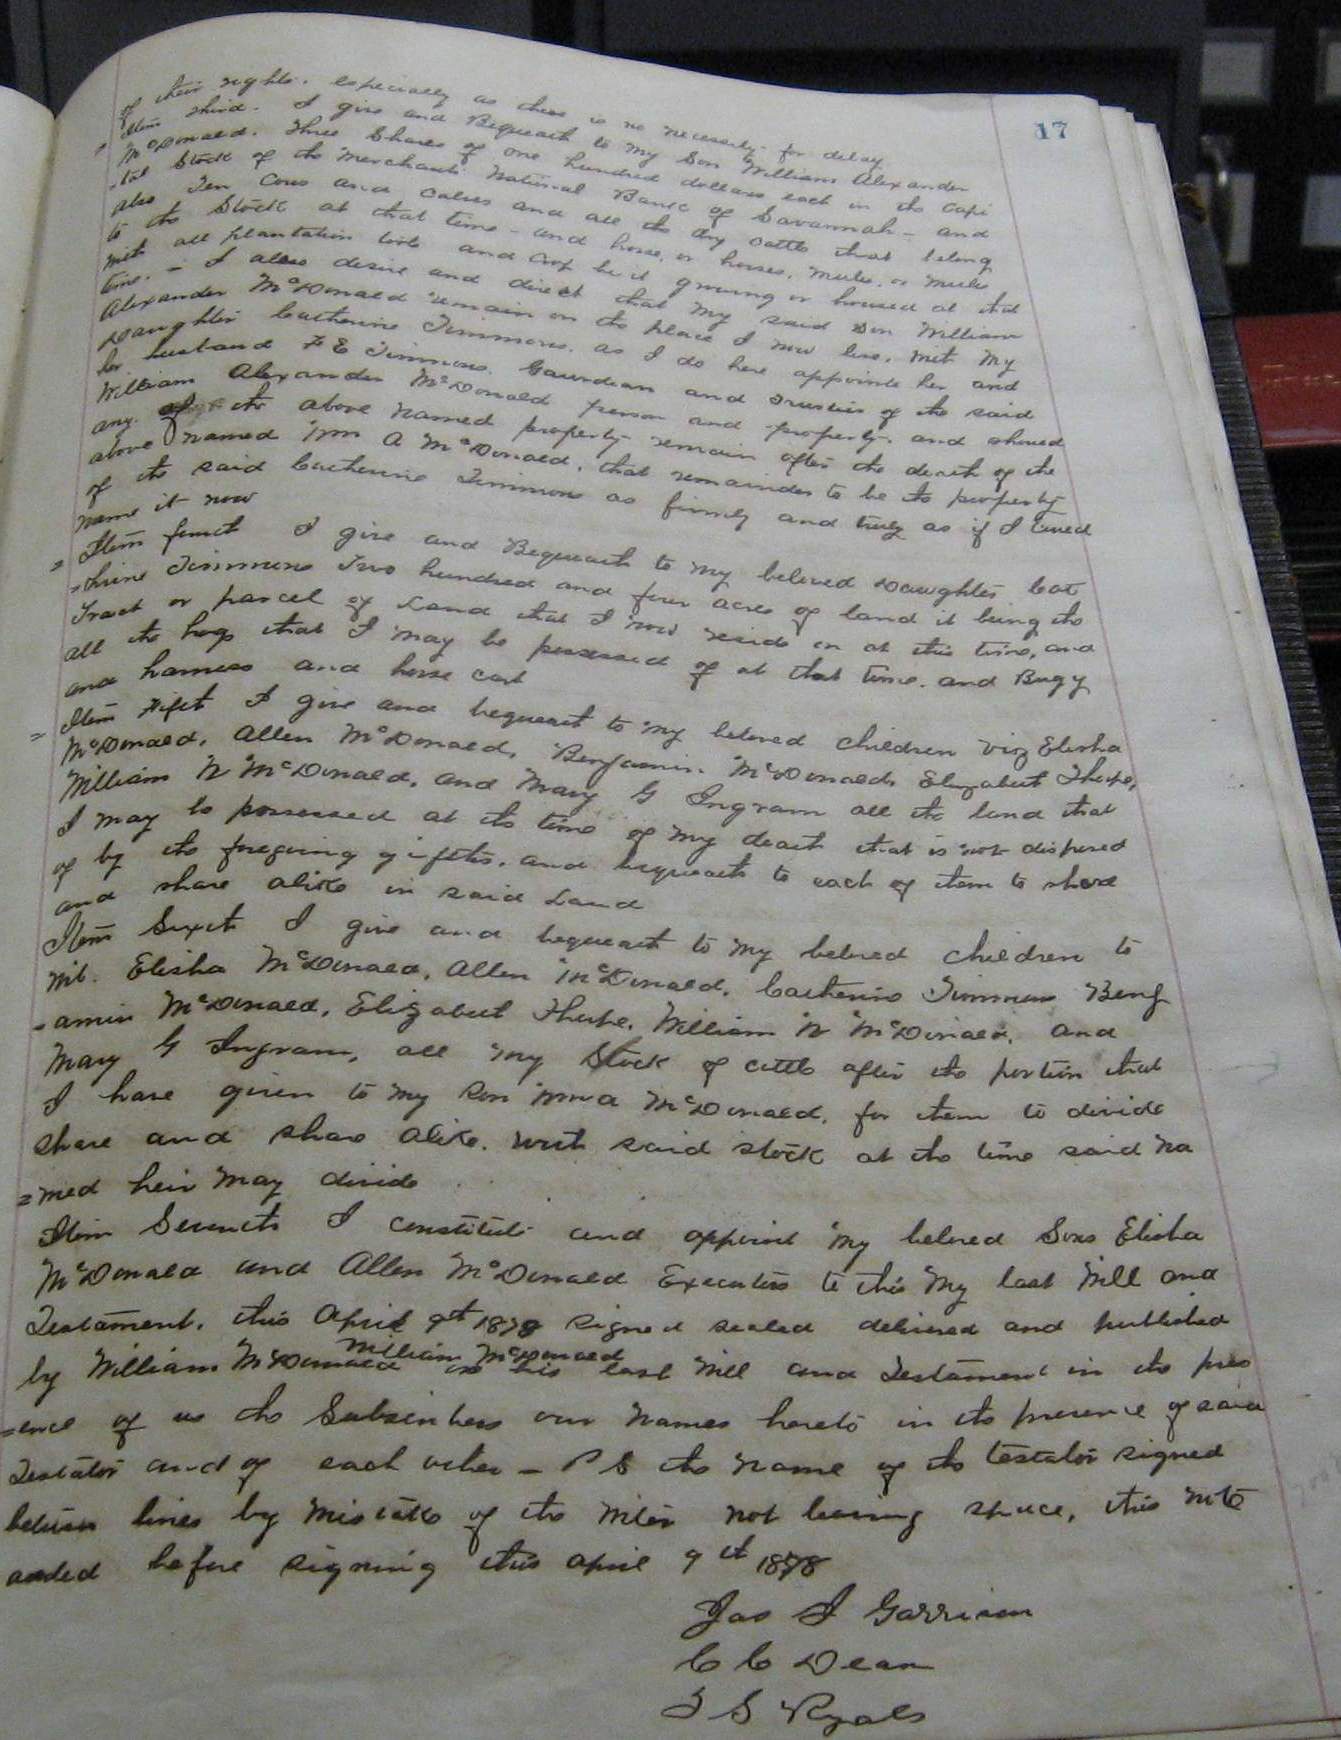 17
of their rights. especially as there is no necessity for delay
= Item third. I give and Bequeath to my Son William Alexander
McDonald. Three Shares of one hundred dollars each in the Capi
-tal Stock of the Merchants National Bank of Savannah - and
also Ten Cows and Calves and all the dry cattle that belong
to the Stock at that time - and horse, or horses, mule, or mules
with all plantation tools and crop be it growing or housed at that
time. - I also desire and direct that my said son William
Alexander McDonald remain on the place I now live, with my
Daughter Catherine Timmons. as I do here appointe her and
her husband F E Timmons. Gaurdian and Trustees of the said
William Alexander McDonald person and property. and should
any of the above named property remain after the death of the
above named Wm A McDonald, that remainder to be the property
of the said Catherine Timmons as firmly and truly as if I
name it now
= Item fourth I give and Bequeath to my beloved Daughter Cat
=herine Timmons Two hundred and four acres of land it being the
Tract or parcel of Land that I now reside on at this time, and
all the hogs that I may be possessed of at that time. and Bugy
and harness and horse cart
= Item Fifth I give and bequeath to my beloved children viz Elisha
McDonald, Allen McDonald, Benjamin McDonald, Elizabeth Tharpe,
William N McDonald, and Mary G Ingram all the land that
I may be possessed at the time of my death that is not disposed
of by the foregoing gifts. and bequeath to each of them to share
and share alike in said Land
Item Sixth I give and bequeath to my beloved children to
wit. Elisha McDonald, Allen McDonald, Catherine Timmons Benj
-amin McDonald, Elizabeth Tharpe, William N McDonald, and
Mary G Ingram, all my Stock of cattle after the portion that
I have given to my son Wm A McDonald, for them to divide
share and share alike. with said stock at the time said na
=med heir may divide
Item Seventh I constitute and appoint my beloved Sons Elisha
McDonald and Allen McDonald Executors to this my last Will and
Testament. this April 9th 1878 signed sealed delivered and published
William McDonald
by William McDonald as his last Will and Testament in the pres
=ence of us the Subscribers our names hereto in the presence of said
Testator and of each other - P S the name of the testator signed
between lines by mistake of the writer not leaving space, this note
added before signing this april 9th 1878
Jas I Garrison
C C Dean
T S Ryals